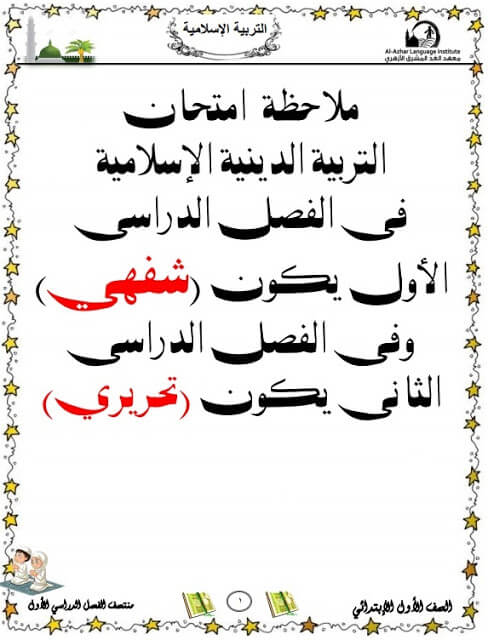 التربية الإسلامية
Al-Azhar Language Institute
معهد الغد المشرق الأزهري
ملاحظة امتحان
التربية الدينية الإسلامية
فى الفصل الدراسى
الأول يكون (شفهي)
وفى الفصل الدراسى
الثانى يكون (تحريري)
الصف الأول الإبتدائي
١
منتصف الفصل الدراسي الأول